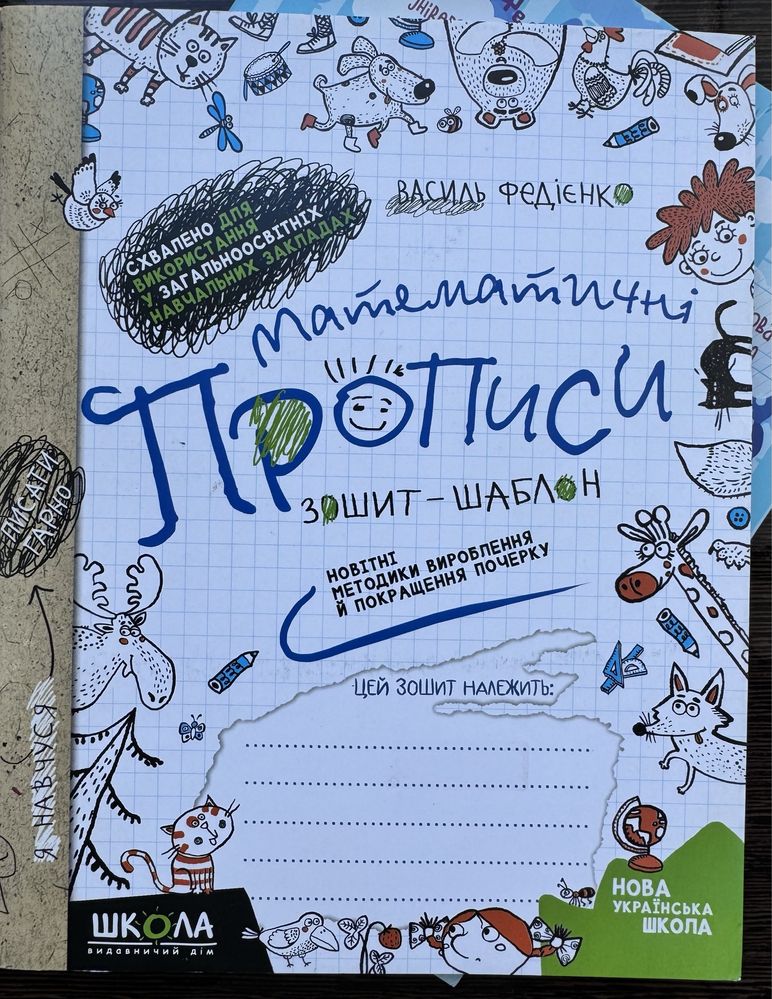 ВАСИЛЬ ФЕДІЄНКО
СХВАЛЕНО ДЛЯ
ВИКОРИСТАННЯ
У ЗАГАЛЬНООСВІТНІХ
НАВЧАЛЬНИХ ЗАКЛАДАХ
математичні
Прописи
ЗОШИТ – ШАБЛОН
НОВІТНІ
МЕТОДИКИ ВИРОБЛЕННЯ
Й ПОКРАЩЕННЯ ПОЧЕРКУ
Я НАВЧУСЯ
ПИСАТИ
ГАРНО
ЦЕЙ ЗОШИТ НАЛЕЖИТЬ:
ШКОЛА
видавничий дім
НОВА
УКРАЇНСЬКА
ШКОЛА